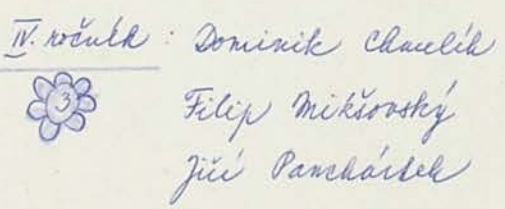 IV. ročník : Dominik Chmelík
3 Filip Mikšovský
Jiří Panchártek